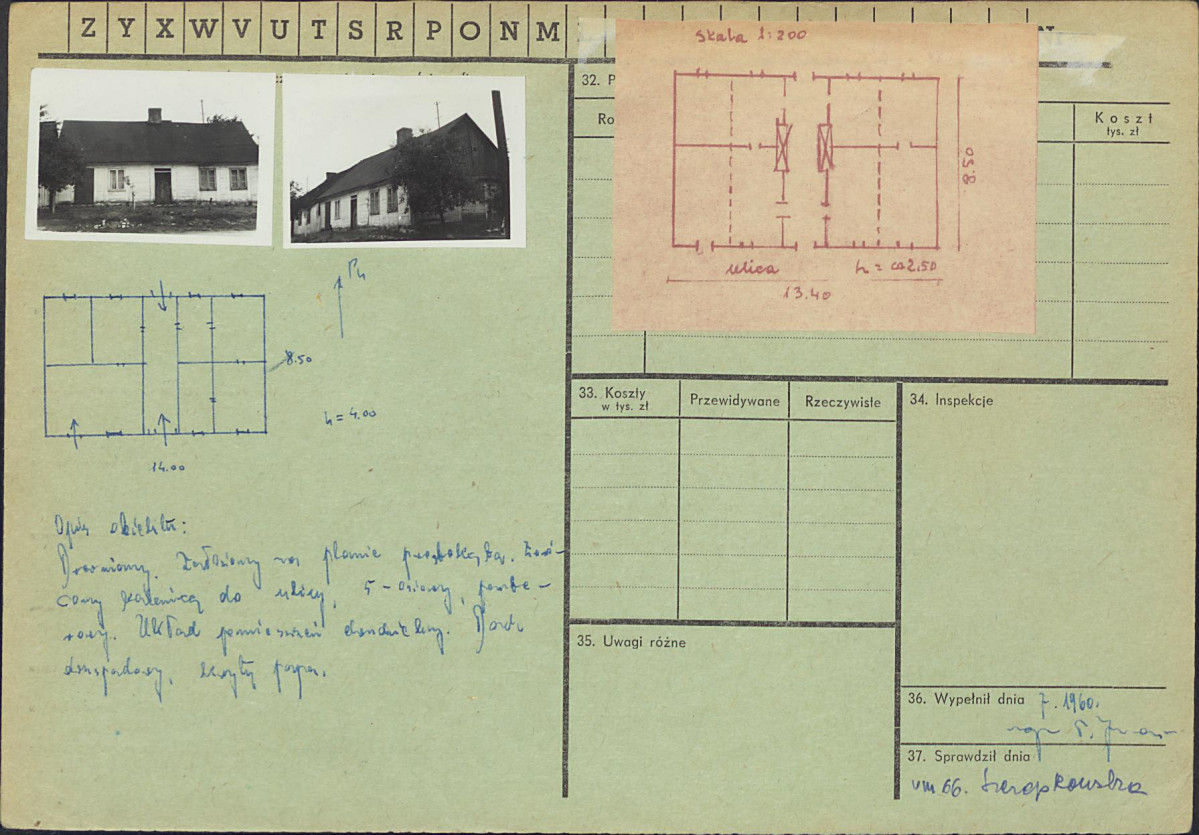 Z Y X W V U T S R P O N M
skala 1:200
8.50
ulica
h = ca 2.50
13.40
32. P
Ro
Koszt
tys. zł
Pn
8.50
h = 4.00
14.00
33. Koszty
w tys. zł
Przewidywane
Rzeczywiste
34. Inspekcje
Opis obiektu:
Drewniany. Założony na planie prostokąta. Zwró-
cony kalenicą do ulicy, 5-osiowy, parte-
rowy. Układ pomieszczeń Dach
dwuspadowy, kryty papą.
35. Uwagi różne
36. Wypełnił dnia 7.1960.
mgr
37. Sprawdził dnia
VIII 66.